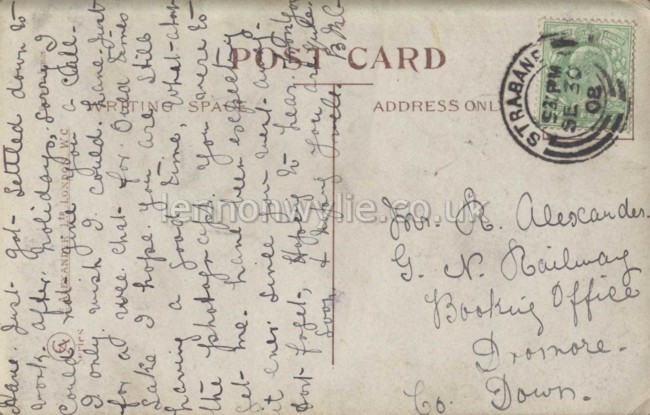 POST CARD
WRITING SPACE
ADDRESS ONLY
STRABANE
5 30 PM
SE 30
08
Have Just got Settled down to
work after holidays, Sorry I
could not give you a Call.
I only wish I could have Just
for a wee chat for Ould times
Sake I hope. You are Still
having a good time, What about
the photograph. You were to
let me. have been expecting
it ever since you went away.
Dont forget, Hoping to hear from you
soon & hoping you are quite
well. B McC
Mr. R. Alexander.
G. N. Railway
Booking Office
Dromore.
Co. Down.
lennonwylie.co.uk